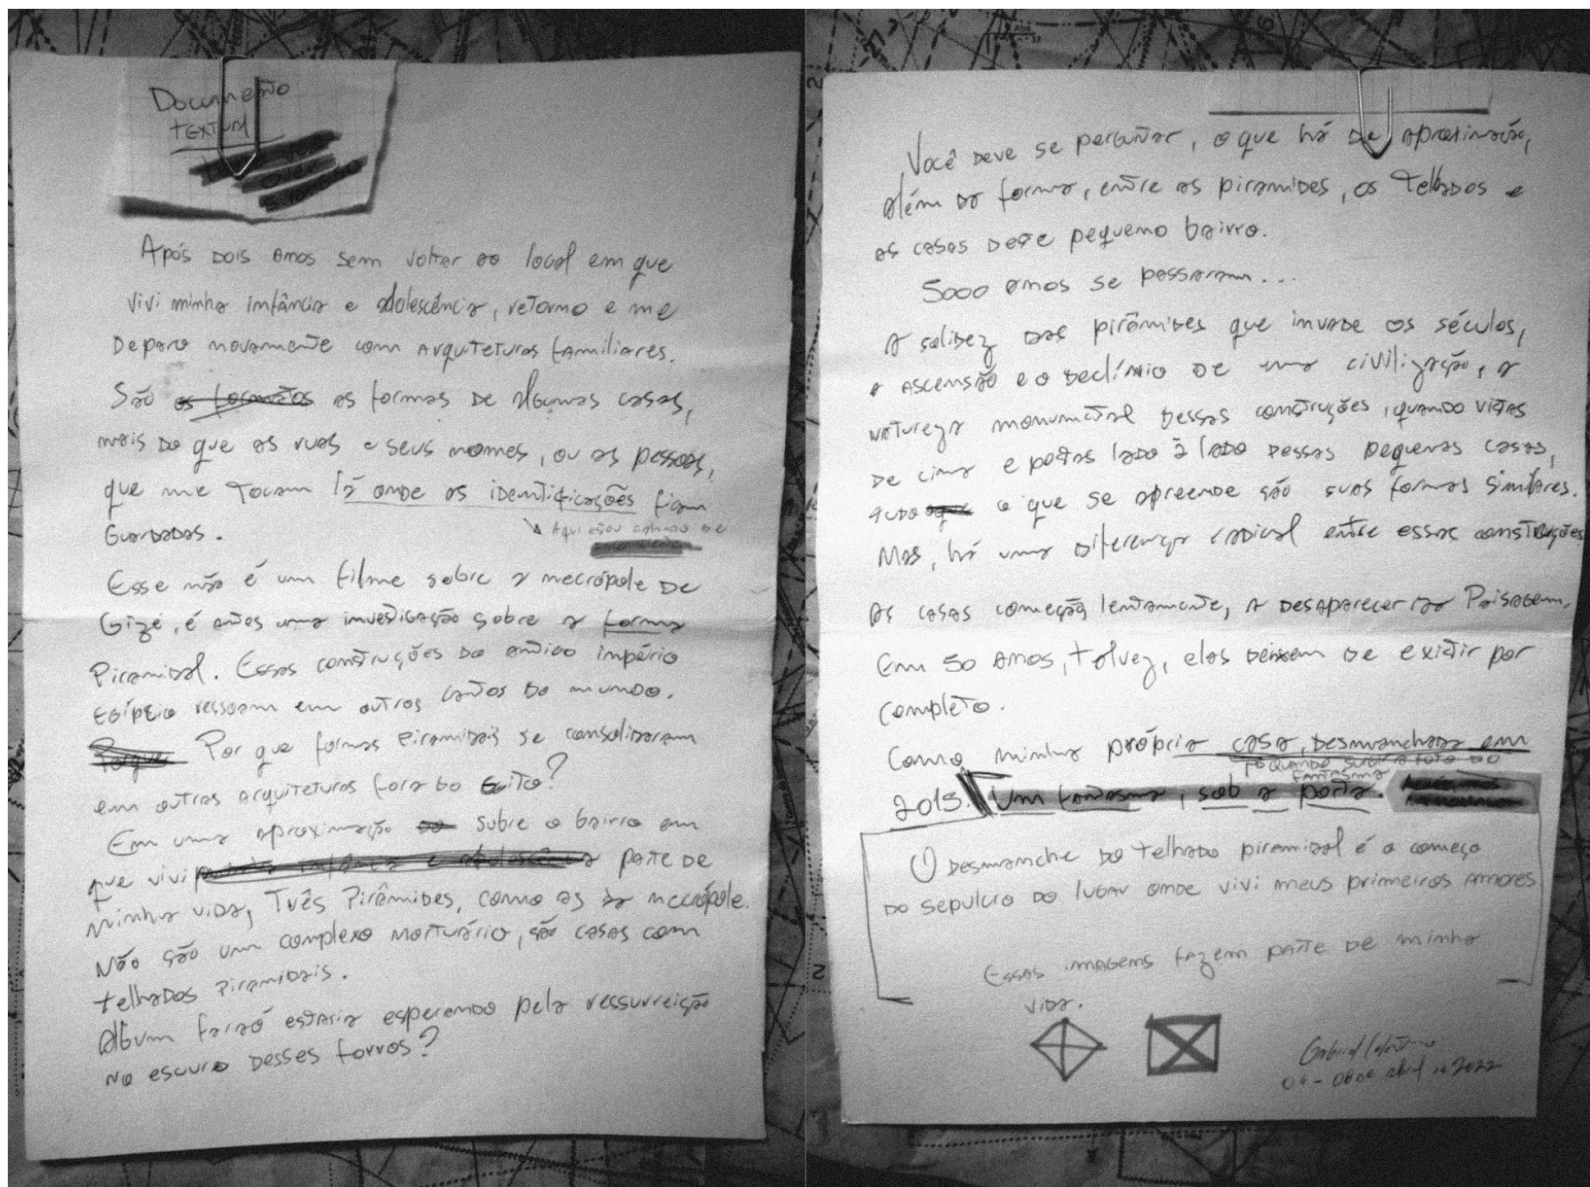 Documento
textual
Após dois anos sem voltar ao local em que
vivi minha infância e adolescência, retorno e me
deparo novamente com arquiteturas familiares.
São os formatos as formas de algumas casas,
mais do que as ruas e seus nomes, ou as pessoas,
que me tocam lá onde as identificações ficam
guardadas.
Aqui estou de
Esse não é um filme sobre a necrópole de
Gizé, é antes uma investigação sobre a forma
piramidal. Essas construções do antigo império
egípcio ressoam em outros cantos do mundo.
Porque Por que formas piramidais se consolidaram
em outras arquiteturas fora do Egito?
Em uma aproximação sobre o bairro em
que vivi minha infância e adolescência parte de
minha vida, Três Pirâmides, como as da necrópole.
Não são um complexo mortuário, são casas com
telhados piramidais.
Algum faraó estaria esperando pela ressurreição
no escuro desses forros?
Você deve se perguntar, o que há de aproximação,
além da forma, entre as piramides, os telhados e
as casas deste pequeno bairro.
5000 anos se passaram...
A solidez das pirâmides que invade os séculos,
a ascensão e o declínio de uma civilização, a
natureza monumental dessas construções, quando vistas
de cima e postas lado à lado dessas pequenas casas,
tudo o que se apreende são suas formas similares.
Mas, há uma diferença radical entre essas construções
As casas começão lentamente, a desaparecer da Paisagem.
Em 50 anos, talvez, elas deixem de existir por
completo.
Como minha própria casa, desmanchada em
quando surgir a foto do
fantasma
2015. Um fantasma, sob a porta.
O desmanche do telhado piramidal é o começo
do sepulcro do lugar onde vivi meus primeiros amores.
Essas imagens fazem parte de minha
vida.
Gabriel
de abril de 2022